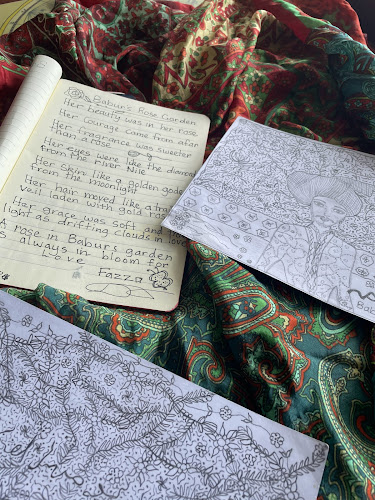 Babur's Rose Garden
Her beauty was in her rose
Her courage came from afar
Her fragrance was sweeter
than a rose
Her eyes were like the diamond
from the river Nile
Her skin like a golden
from the moonlight
Her hair moved like a
veil laden with gold
Her grace was soft and
light as drifting clouds in love
A rose in Babur's garden
is always in bloom for
Love
Fazza